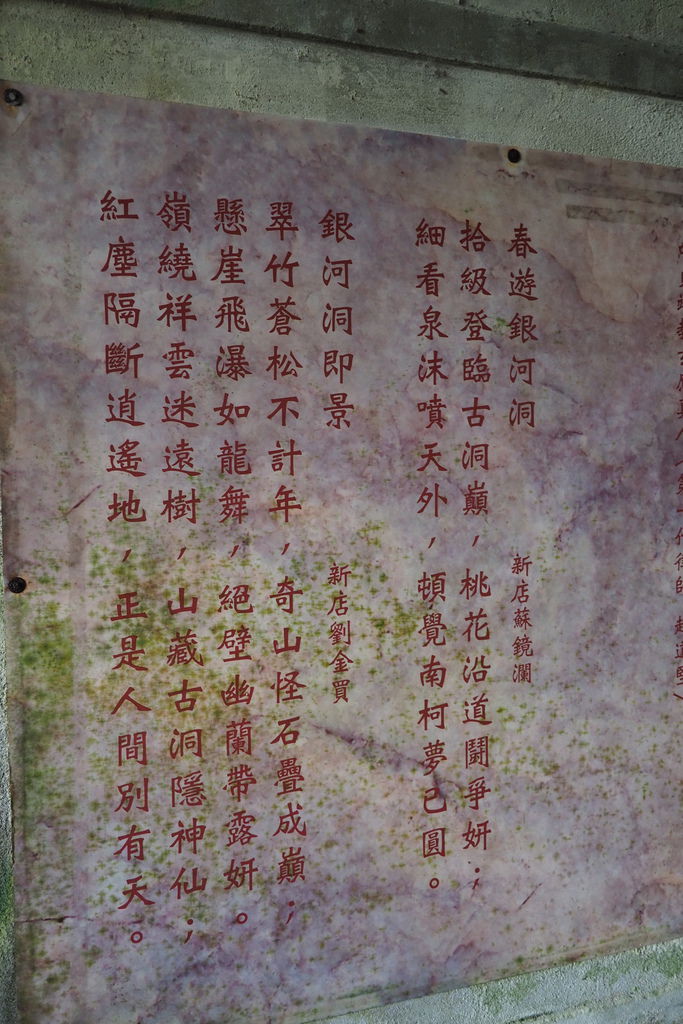 春遊銀河洞
新店蘇鏡瀾
拾級登臨古洞巔，桃花沿道鬪爭妍；
細看泉沫噴天外，頓覺南柯夢已圓。
銀河洞即景
新店劉金買
翠竹蒼松不計年，奇山怪石疊成巔；
懸崖飛瀑如龍舞，絕壁幽蘭帶露妍。
嶺繞祥雲迷遠樹，山藏古洞隱神仙；
紅塵隔斷逍遙地，正是人間別有天。